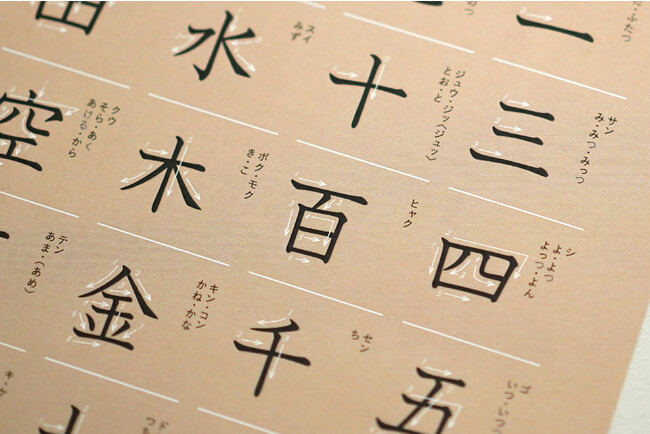 ふたつ
三
サン
み・みつ・みっつ
四
シ
よ・よつ
よっつ・よん
五
ゴ
いつ・いつ
十
ジュウ・ジッ(ジュッ)
とお・と
百
ヒャク
千
セン
ち
水
スイ
みず
木
ボク・モク
き・こ
金
キン・コン
かね・かな
ド
つ
空
クウ
そら・あく
あける・から
テン
あま・(あめ)
キ・ケ